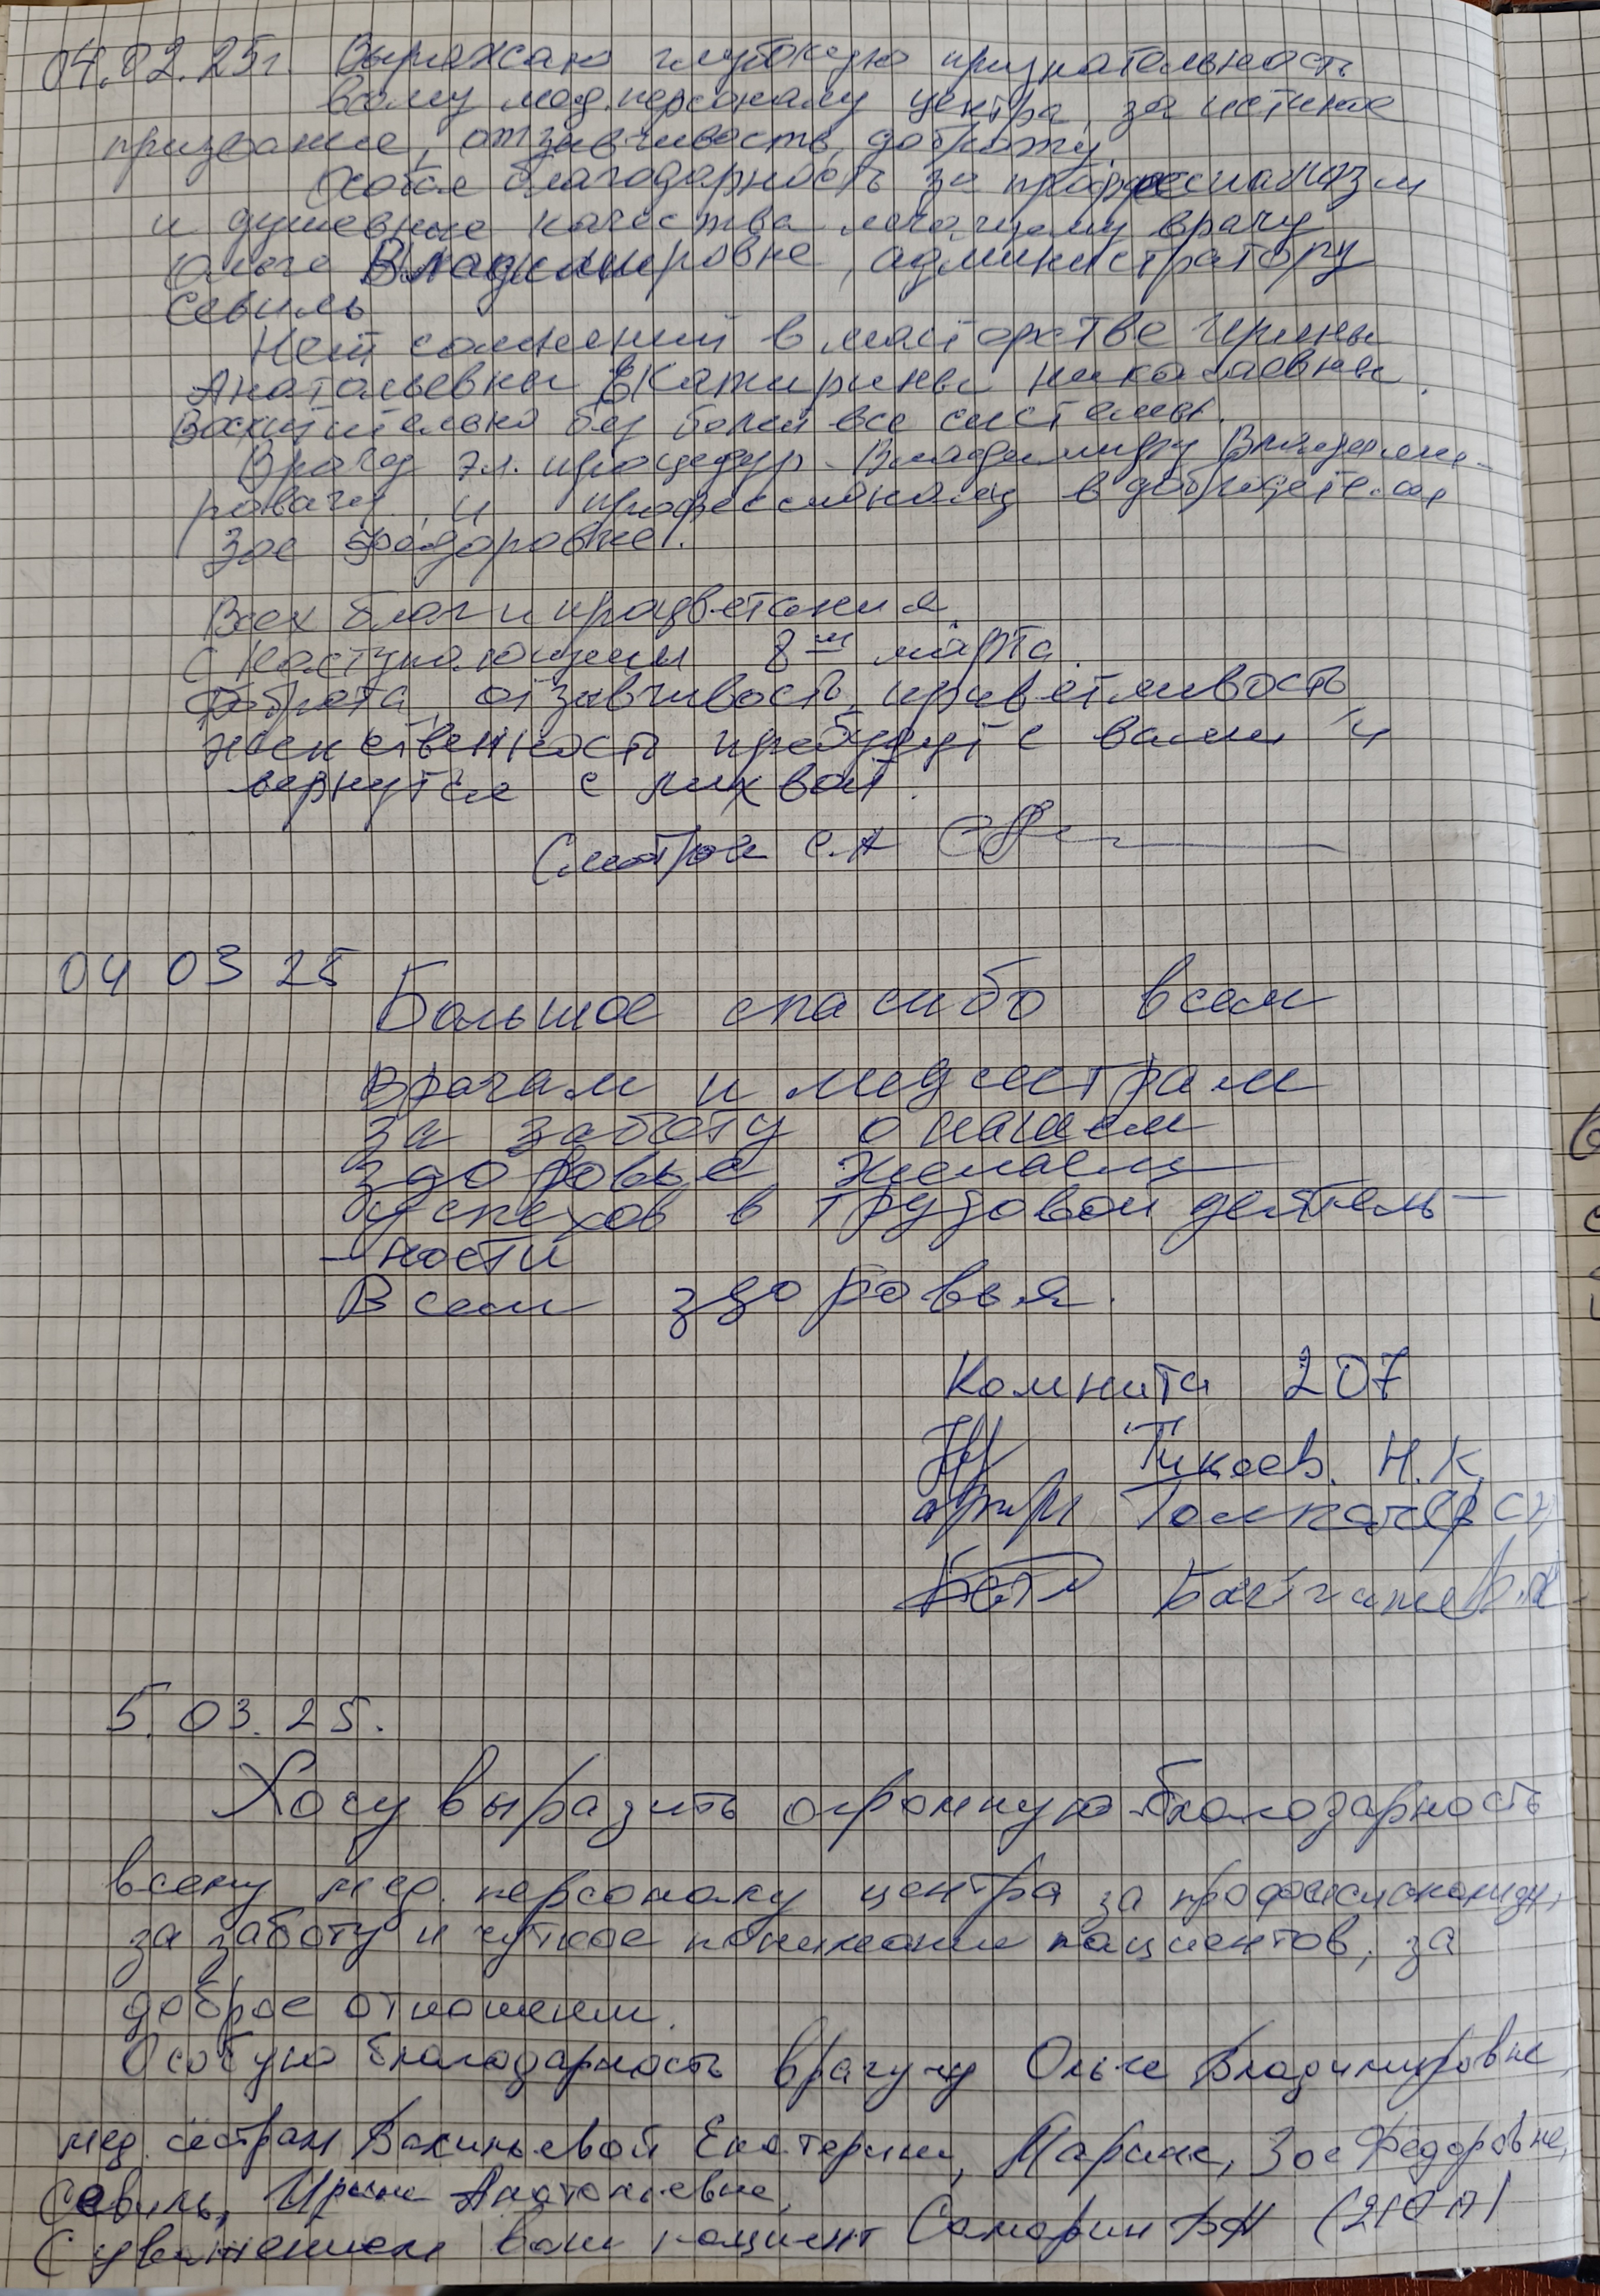 04.02.25г. Выражаю глубокую признательность
всему мед.персоналу центра, за истиное
призвание, отзывчивость, доброту.
Особая благодарность за професианизм
и душевные качества лечащему врачу
Ольге Владимировне, администратору
Севиль
Нет сомнений в мастерстве Ирины
Анатольевны Екатирины Николаевны.
Восхитительно без боли все системы.
Врачу эл. процедур Владимиру Владими-
ровачу, и професионалу в добродетелях
Зое Федоровне!
Всех благ и процветания
с наступающим 8м марта.
Доброта, отзывчивость, приветливость
женственность пребудут с вами и
вернутся с лихвой.
С.А
04 03 25
Большое спасибо всем
врачам и медсестрам
за заботу о нашем
здоровье, желаем
успехов в трудовой деятель-
-ности
Всем здоровья.
Комната 207
Тикаев. Н.К.
Толкачев
5.03.25.
Хочу выразить огромную благодарность
всему мед. персоналу центра за профессионализм,
за заботу и чуткое понимание пациентов, за
доброе отношение.
Особую благодарность врачу Ольге Владимировне,
мед. сестрам Екатерине, Марине, Зое Федоровне,
Севиль, Ирине Анатольевне,
С уважением ваш пациент Самарин